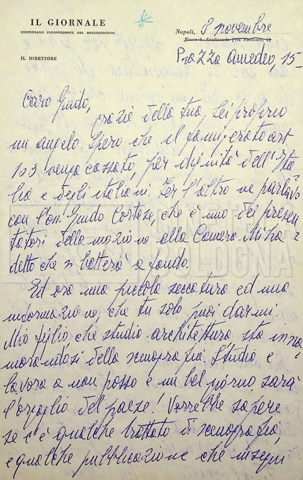 IL GIORNALE
QUOTIDIANO INDIPENDENTE DEL MEZZOGIORNO
IL DIRETTORE
Napoli, 8 novembre
Piazza Amedeo, 15-
Caro Guido,
grazie della tua. Sei proprio
un angelo. Spero che il famigerato art
103 venga cassato, per dignità dell'Ita
lia e degli italiani. Per l'altro ne parlavo
con l'on. Guido Cortese, che è uno dei presen
tatori della mozione alla Camera. Mi ha
detto che si batterà a fondo.
Ed ora una piccola seccatura ed una
informazione, che tu solo puoi darmi.
Mio figlio, che studia architettura, sta inna
morandosi della scenografia. Studia e
lavora a non posso e un bel giorno sarà
l'orgoglio del paese! Vorrebbe sapere
se c'è qualche trattato di scenografia,
e qualche pubblicazione che insegni